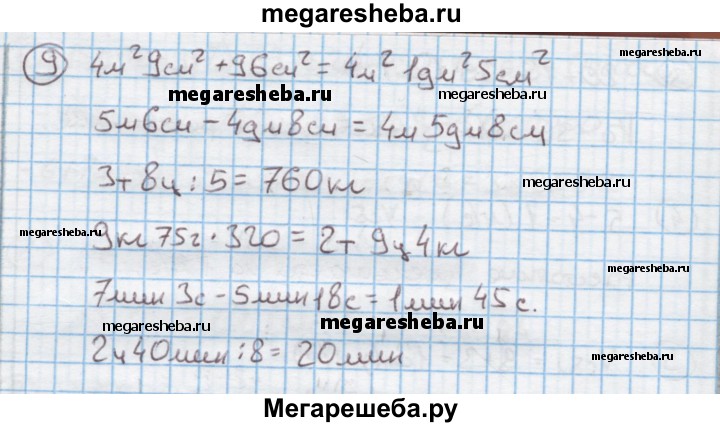 megaresheba.ru
9 4м² 9см² + 96см² = 4м² 1дм² 5см²
megaresheba.ru
megaresheba.ru
5м6см - 4дм8см = 4м 5дм8см
3т 8ц : 5 = 760кг
megaresheba.ru
megaresheba.ru
9кг 75г · 320 = 2т 9ц 4кг
megaresheba.ru
7мин 3с - 5мин 18с = 1мин 45с.
megaresheba.ru
megaresheba.ru
2ч40мин : 8 = 20мин
megaresheba.ru
megaresheba.ru
Мегарешеба.ру